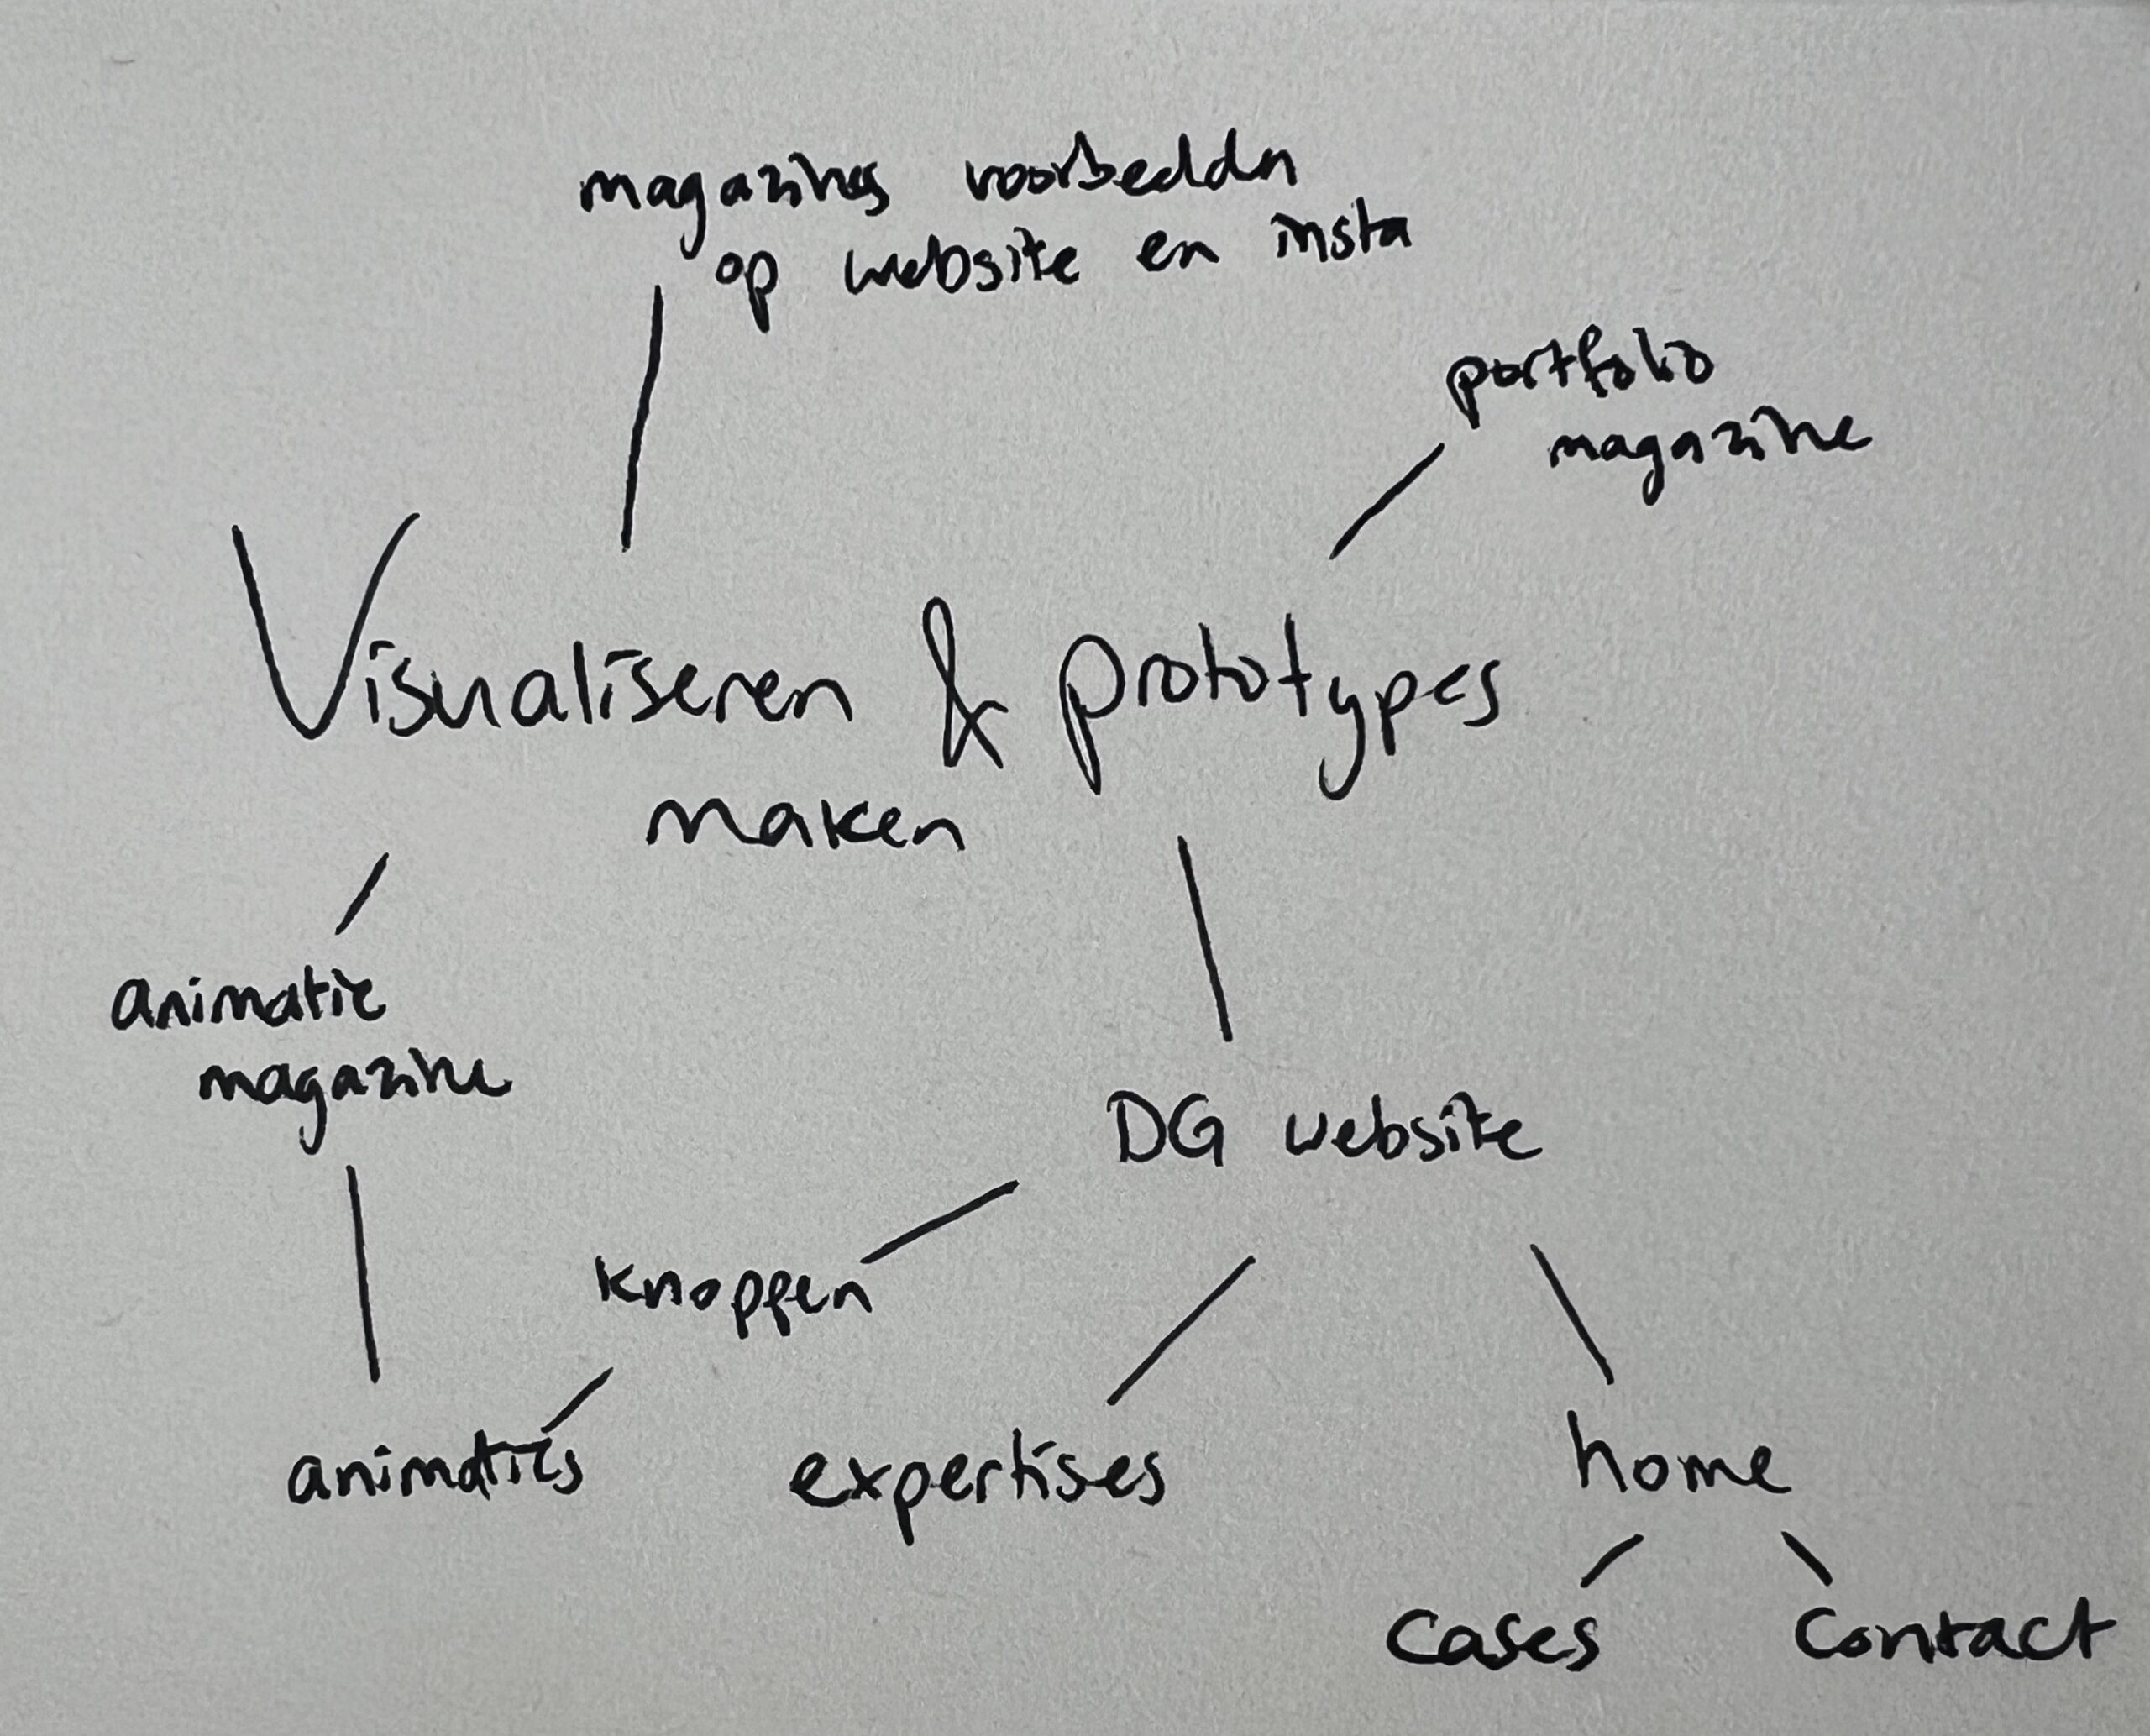 magazines voorbeeldn
op website en insta
portfolio
magazine
Visualiseren & prototypes
maken
animatie
magazine
DG website
knoppen
animaties
expertises
home
Cases
Contact